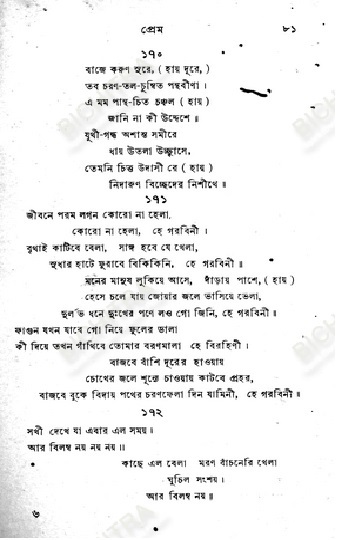 প্রেম ৮১
১৭০
বাজে করুণ সুরে, ( হায় দূরে, )
তব চরণ-তল-চুম্বিত পন্থবীণা ।
এ মম পান্থ-চিত চঞ্চল ( হায় )
জানি না কী উদ্দেশে ॥
যূথী-গন্ধ অশান্ত সমীরে
ধায় উতলা উচ্ছ্বাসে,
তেমনি চিত্ত উদাসী রে ( হায় )
নিদারুণ বিচ্ছেদের নিশীথে ॥
১৭১
জীবনে পরম লগন কোরো না হেলা,
কোরো না হেলা, হে গরবিনী ।
বৃথাই কাটিবে বেলা, সাঙ্গ হবে যে খেলা,
সুধার হাটে ফুরাবে বিকিকিনি, হে গরবিনী ॥
মনের মানুষ লুকিয়ে আসে, দাঁড়ায় পাশে, ( হায় )
হেসে চলে যায় জোয়ার জলে ভাসিয়ে ভেলা,
দুর্লভ ধনে দুঃখের পণে লও গো জিনি, হে গরবিনী ॥
ফাগুন যখন যাবে গো নিয়ে ফুলের ডালা
কী দিয়ে তখন গাঁথিবে তোমার বরণমালা হে বিরহিণী ।
বাজবে বাঁশি দূরের হাওয়ায়
চোখের জলে শূন্যে চাওয়ায় কাটবে প্রহর,
বাজবে বুকে বিদায় পথের চরণফেলা দিন যামিনী, হে গরবিনী ॥
১৭২
সখী দেখে যা এবার এল সময় ॥
আর বিলম্ব নয় নয় নয় ॥
কাছে এল বেলা মরণ বাঁচনেরি খেলা
ঘুচিল সংশয় ।
আর বিলম্ব নয় ॥
৬